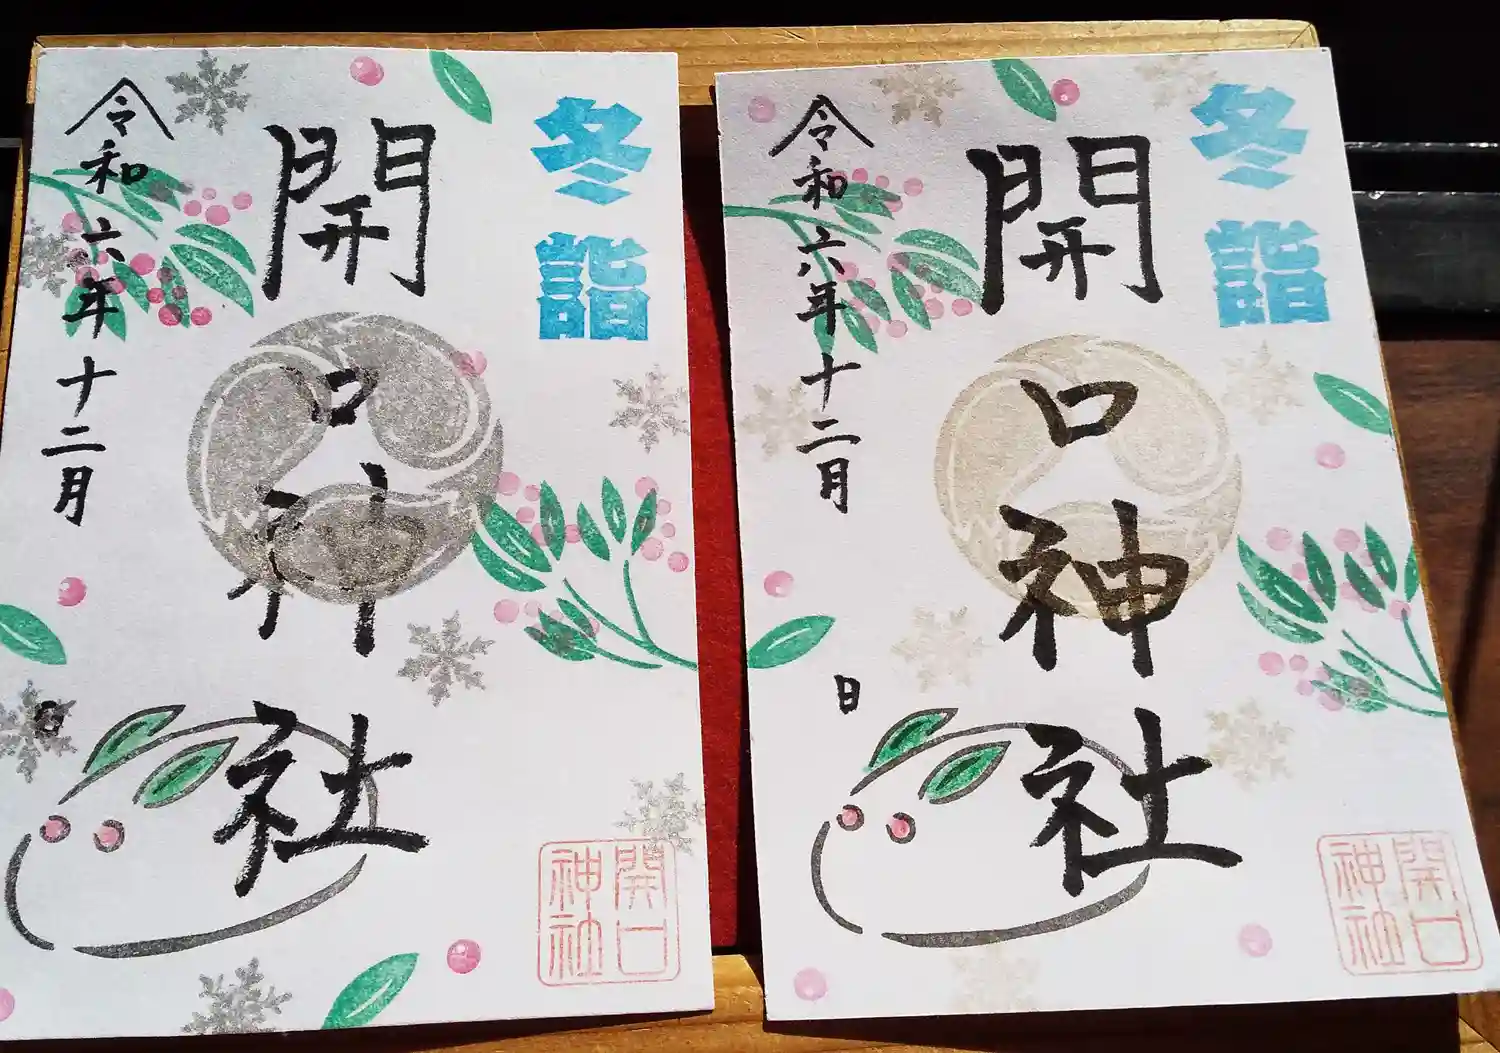 冬詣
開口神社
令和六年十二月 日
開口神社
冬詣
開口神社
令和六年十二月 日
開口神社